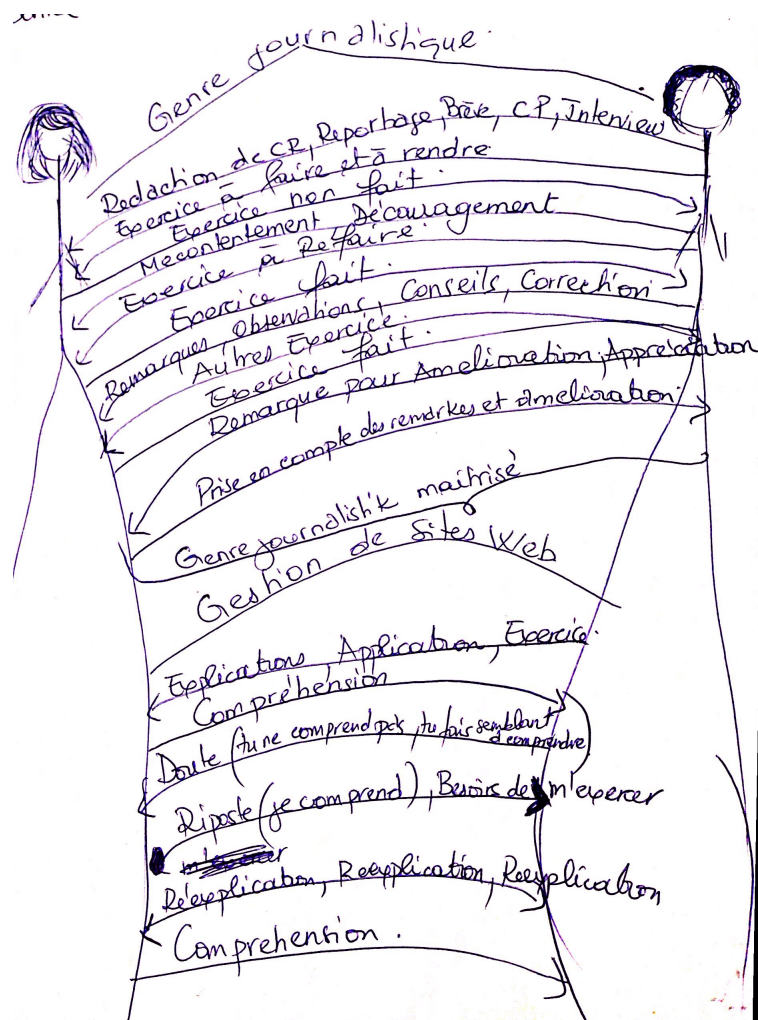 Genre journalistique.
Redaction de CR, Reportage, Brève, CP, Interview
Exercice à faire et à rendre
Exercice non fait.
Mecontentement Décauagement
Exercice à Refaire.
Exercice fait.
Remarques, Observations, Conseils, Correction
Autres Exercice.
Exercice fait.
Remarque pour Amelioration, Appreciation
Prise en compte des remarkes et amelioration.
Genre journalist'k maitrisé
Gestion de Sites Web
Explications, Application, Exercice.
Compréhension
Doute (tu ne comprend pas, tu fais semblant
de comprendre)
Riposte (je comprend), Besoins de m'exercer
Réexplication, Reexplication, Reexplication
Comprehension.